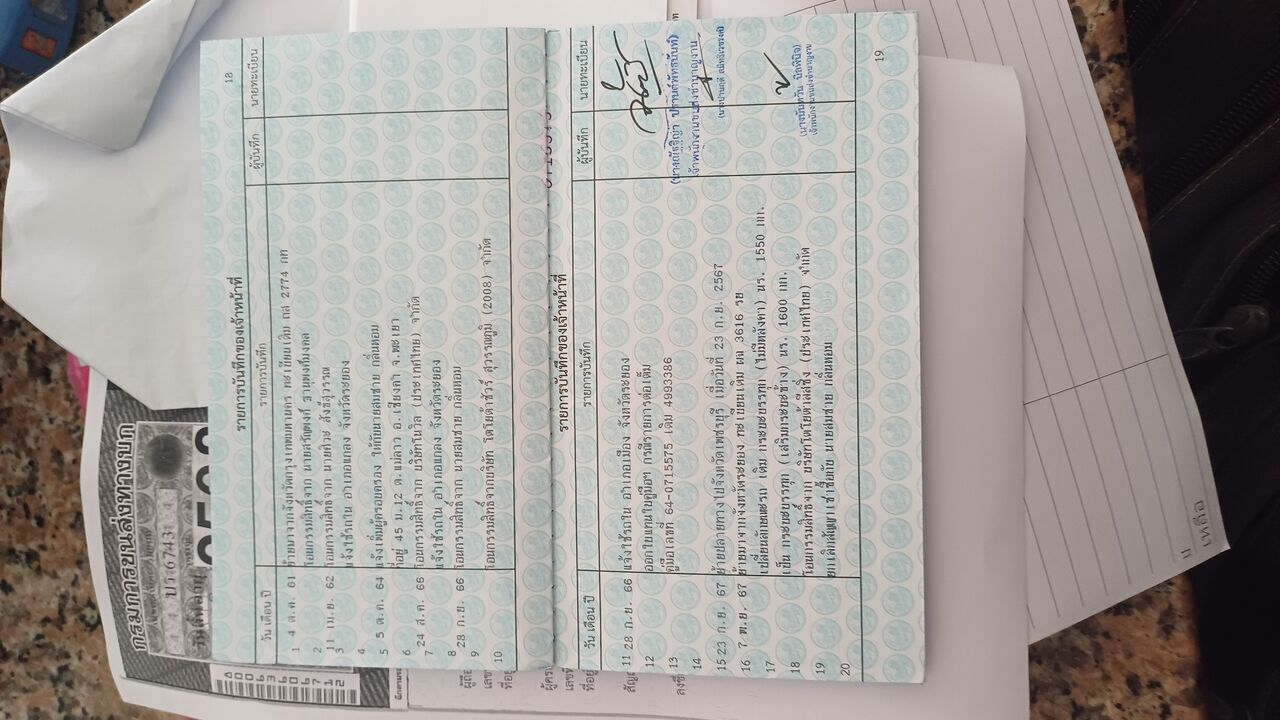 18
รายการบันทึกของเจ้าหน้าที่
วัน เดือน ปี รายการบันทึก ผู้บันทึก นายทะเบียน
1 4 ต.ค. 61 ย้ายมาจากจังหวัดกรุงเทพมหานคร ทะเบียนเดิม ถล 2774 กท
2 โอนกรรมสิทธิ์จาก
3 11 เม.ย. 62 โอนกรรมสิทธิ์จาก
4 แจ้งใช้รถใน อำเภอแกลง จังหวัดระยอง
5 5 ต.ค. 64 แจ้งเพิ่มผู้ครอบครอง ให้กับนายสมชาย กลิ่นหอม
6 ที่อยู่ 45 ม.12 ต.แม่ลาว อ.เชียงคำ จ.พะเยา
7 24 ส.ค. 66 โอนกรรมสิทธิ์จาก (ประเทศไทย) จำกัด
แจ้งใช้รถใน อำเภอแกลง จังหวัดระยอง
8 28 ก.ย. 66 โอนกรรมสิทธิ์จาก นายสมชาย กลิ่นหอม
9 โอนกรรมสิทธิ์จากบริษัท โตโยต้าชัวร์ สุวรรณภูมิ (2008) จำกัด
10
รายการบันทึกของเจ้าหน้าที่
วัน เดือน ปี รายการบันทึก ผู้บันทึก นายทะเบียน
11 28 ก.ย. 66 แจ้งใช้รถใน อำเภอเมือง จังหวัดระยอง
12 ออกใบแทนใบคู่มือฯ กรณีรายการต่อเต็ม
13 คู่มือเลขที่ 64-0715575 เดิม 4993386
14
15 23 ก.ย. 67 ย้ายปลายทางไปจังหวัดเพชรบุรี เมื่อวันที่ 23 ก.ย. 2567
16 7 พ.ย. 67 ย้ายมาจากจังหวัดระยอง ทะเบียนเดิม ผต 3616 รย
17 เปลี่ยนลักษณะรถ เดิม กระบะบรรทุก (ไม่มีหลังคา) นร. 1550 กก.
18 เป็น กระบะบรรทุก (เสริมกระบะข้าง) นร. 1600 กก.
19 โอนกรรมสิทธิ์จาก บริษัทโตโยต้าลีสซิ่ง (ประเทศไทย) จำกัด
20 ยกเลิกสัญญาเช่าซื้อกับ นายสมชาย กลิ่นหอม
เจ้าพนักงานขนส่งชำนาญงาน
19
กรมการขนส่งทางบก
บร 6743
เหลือ